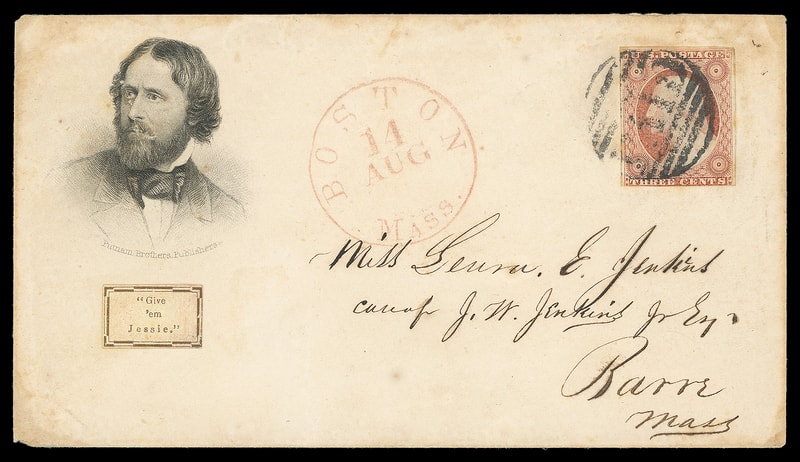 POSTAGE
THREE CENTS
BOSTON
14
AUG
MASS.
Putnam Brothers, Publishers
"Give
'em
Jessie."
Miss Leura. E. Jenkins
care of J. W. Jenkins Jr Esq
Barre
Mass